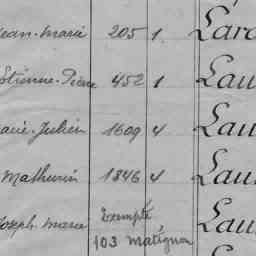 Jean-Marie 205 1
Etienne-Pierre 452 1 Lau
Marie-Julien 1609 4 Lau
Mathurin 1846 4 Lau
Joseph Marie Exempté Lau
103 Matignon